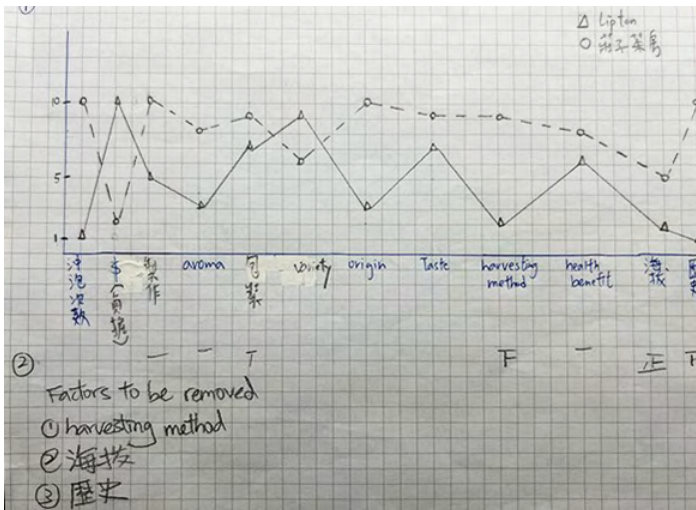 ①
△ Lipton
○
10
5
1
沖泡次數
$(負擔)
製作
aroma
包裝
variety
origin
Taste
harvesting method
health benefit
海拔
一 一 丅 下 一 正 下
②
Factors to be removed
① harvesting method
② 海拔
③ 歷史